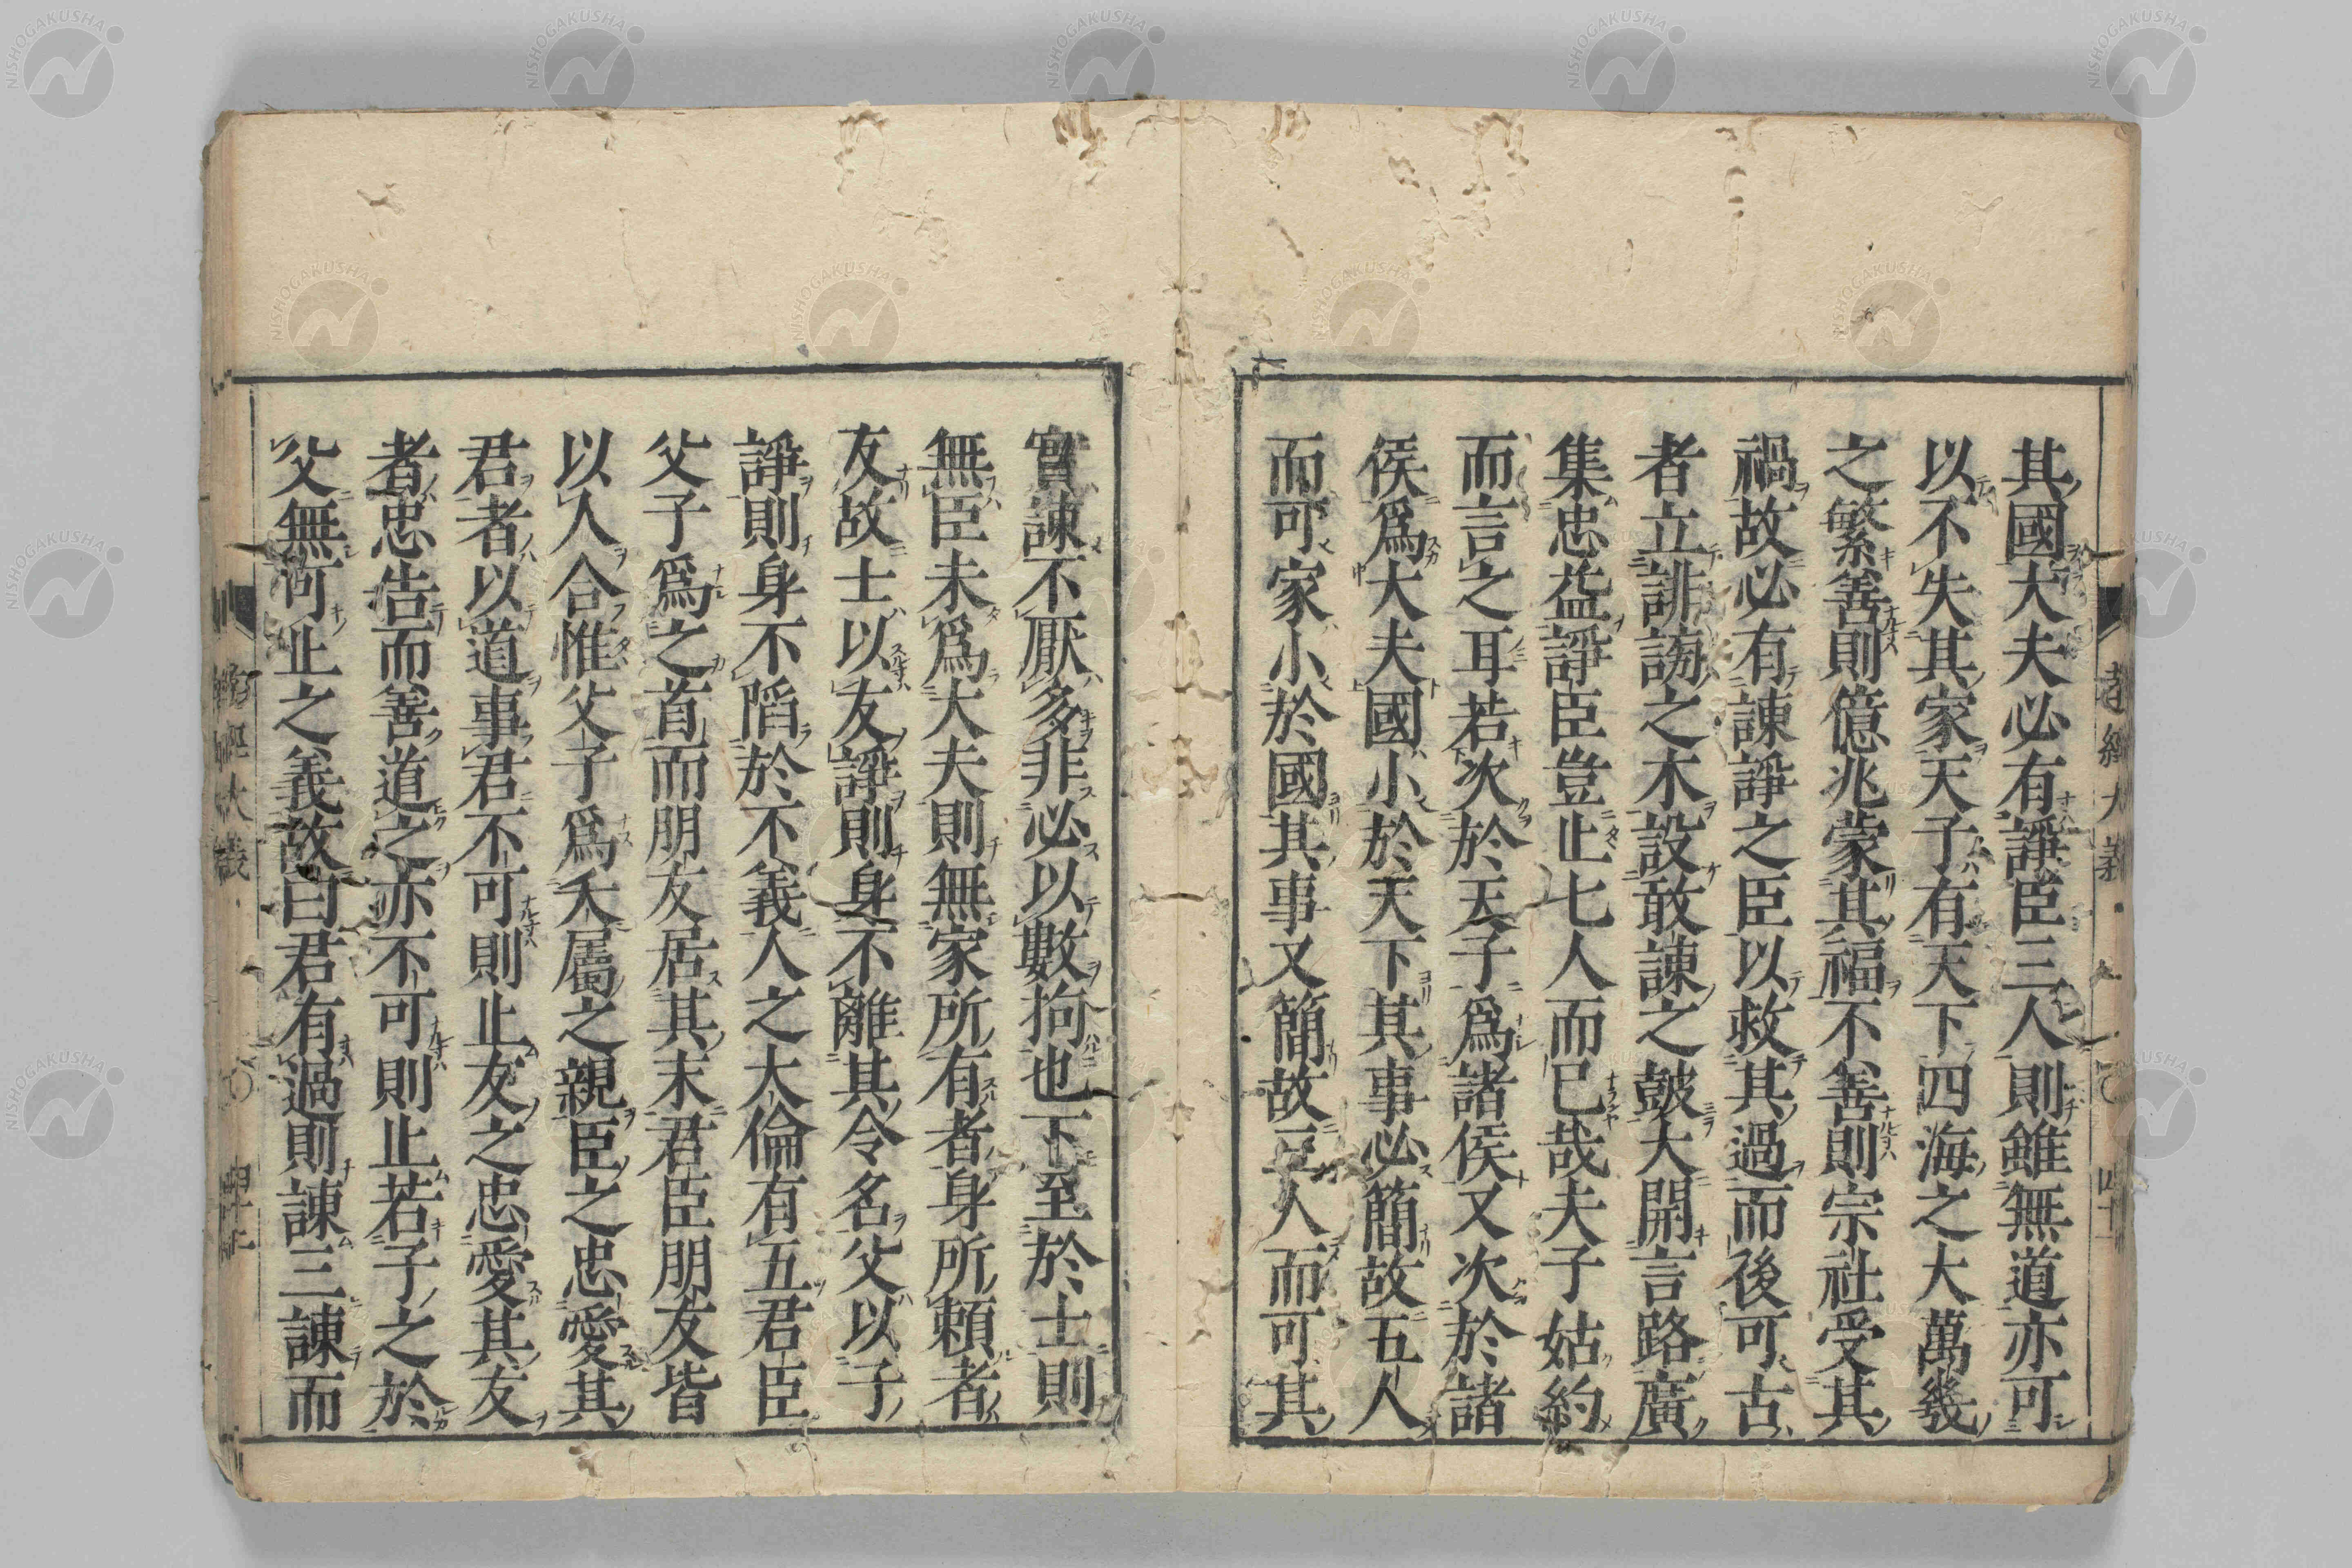 其國大夫必有諍臣三人則雖無道亦可
以不失其家天子有天下四海之大萬幾
之繁善則億兆蒙其福不善則宗社受其
禍故必有諫諍之臣以救其過而後可古
者立誹謗之木設敢諫之皷大開言路廣
集忠益諍臣豈止七人而已哉夫子姑約
而言之耳若次於天子爲諸侯又次於諸
侯爲大夫國小於天下其事必簡故五人
而可家小於國其事又簡故三人而可其
實諫不厭多非必以數拘也下至於士則
無臣未爲大夫則無家所有者身所頼者
友故士以友諍則身不離其令名父以子
諍則身不陷於不義人之大倫有五君臣
父子爲之首而朋友居其末君臣朋友皆
以人合惟父子爲天屬之親臣之忠愛其
君者以道事君不可則止友之忠愛其友
者忠告而善道之亦不可則止若子之於
父無可止之義故曰君有過則諫三諫而
孝經大義 四十
孝經大義
NISHOGAKUSHA